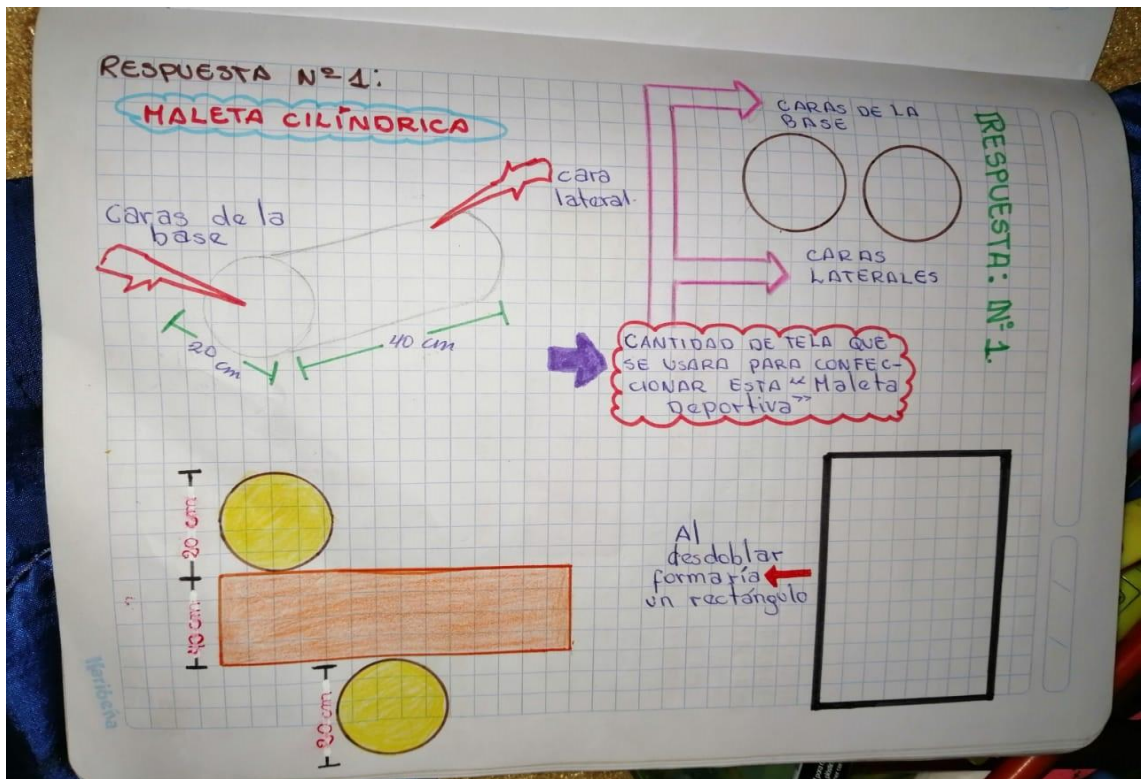 RESPUESTA Nº 1:
MALETA CILÍNDRICA
Caras de la
base
cara
lateral.
20
cm
40 cm
CARAS DE LA
BASE
CARAS
LATERALES
CANTIDAD DE TELA QUE
SE USARA PARA CONFEC-
CIONAR ESTA “Maleta
Deportiva”
RESPUESTA: Nº 1
20 cm
40 cm
20 cm
Al
desdoblar
formaría
un rectángulo